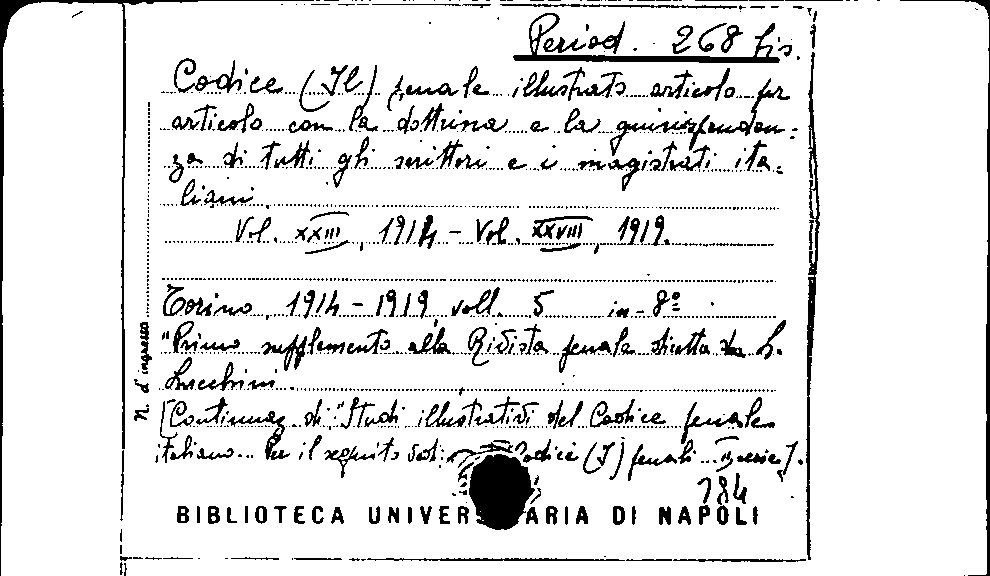 Period. 268 bis.
Codice (Il) penale illustrato articolo per
articolo con la dottrina e la guirisprudan:
za di tutti gli scrittori e i magistrati ita:
liani.
Vol. XXIII, 1914 - Vol. XXVIII, 1919.
Torino, 1914-1919, voll. 5 in-8º
"Primo supplemento alla Rivista penale diretta da L.
Lucchini.
[Continuaz. di "Studi illustrativi del Codice penale
italiano... Per il seguito vedi: Codici (I) penali...
184
N. d'ingresso
BIBLIOTECA UNIVERSITARIA DI NAPOLI